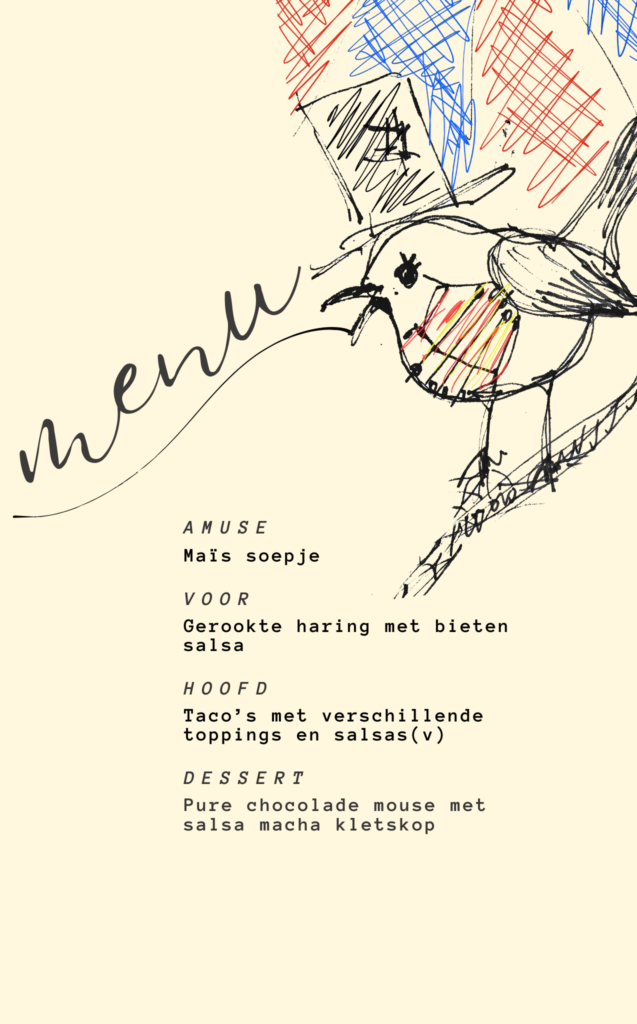 menu
AMUSE
Maïs soepje
VOOR
Gerookte haring met bieten
salsa
HOOFD
Taco’s met verschillende
toppings en salsas(v)
DESSERT
Pure chocolade mouse met
salsa macha kletskop